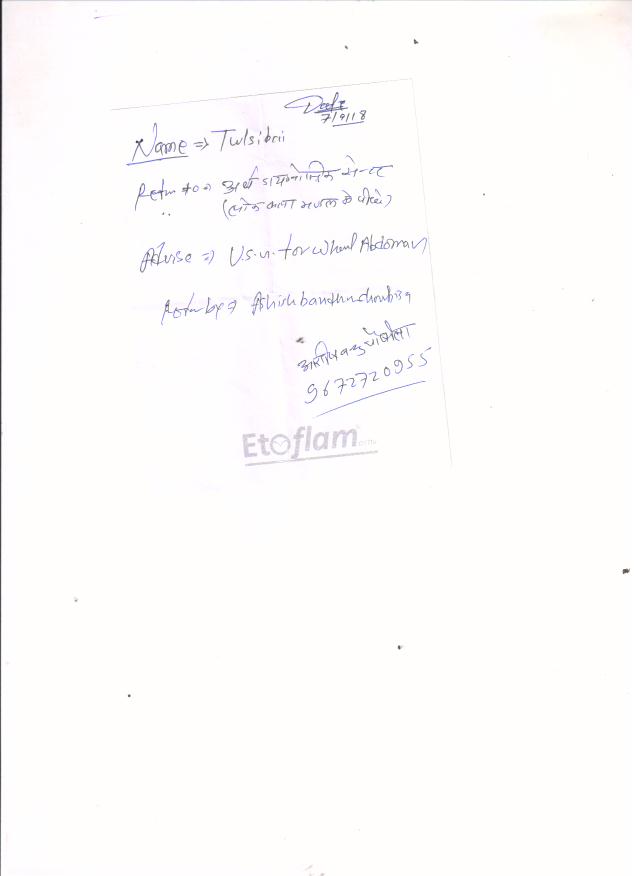 Date
7/9/18
Name => Tulsibai
Refer to => अर्थ डायग्नोस्टिक सेन्टर
(लोक कला मण्डल के पीछे)
Advise => U.S.G. for Whole Abdomen
Refer by => Ashish bandhu choubisa
आशीष बन्धु चौबीसा
9672720955
Etoflam